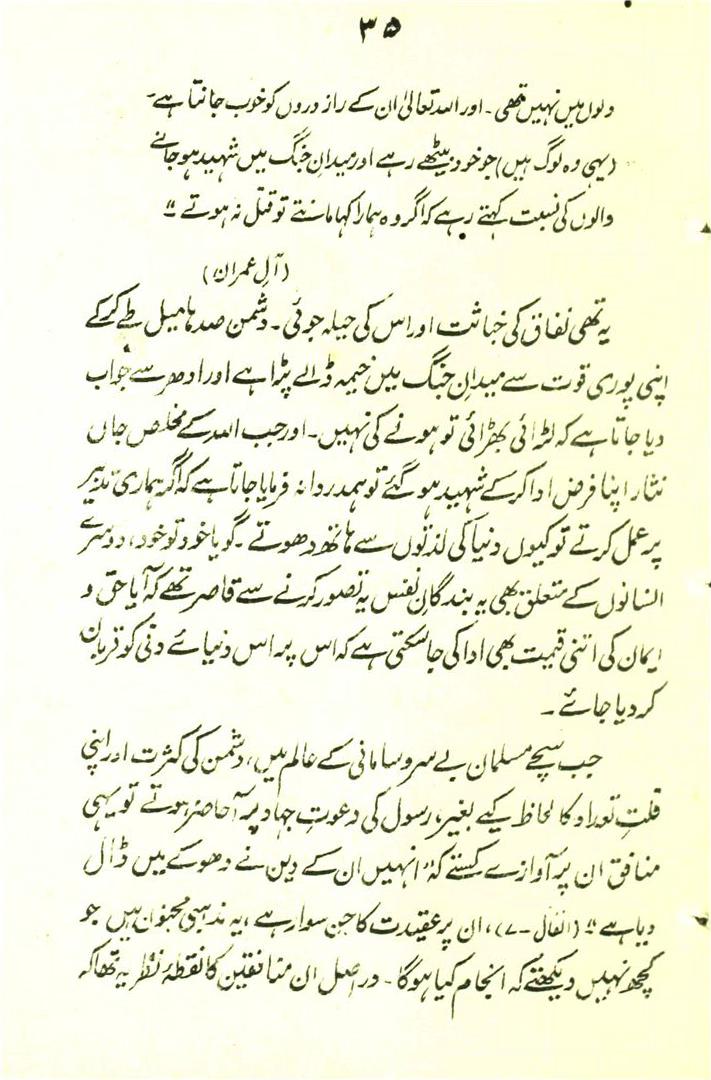 ۳۵
دلوں میں نہیں تھی۔ اور اللہ تعالیٰ ان کے راز دروں کو خوب جانتا ہے۔
(یہی وہ لوگ ہیں) جو خود بیٹھے رہے اور میدانِ جنگ میں شہید ہو جانے
والوں کی نسبت کہتے رہے کہ اگر وہ ہمارا کہا مانتے تو قتل نہ ہوتے"
(آلِ عمران)
یہ تھی نفاق کی خباثت اور اس کی حیلہ جوئی۔ دشمن صدہا میل طے کر کے
اپنی پوری قوت سے میدانِ جنگ میں خیمہ ڈالے پڑا ہے اور ادھر سے جواب
دیا جاتا ہے کہ لڑائی بھڑائی تو ہونے کی نہیں۔ اور جب اللہ کے مخلص جاں
نثار اپنا فرض ادا کر کے شہید ہو گئے تو ہمدردانہ فرمایا جاتا ہے کہ اگر ہماری تدبیر
پر عمل کرتے تو کیوں دنیا کی لذتوں سے ہاتھ دھوتے۔ گویا خود تو خود، دوسرے
انسانوں کے متعلق بھی یہ بندگانِ نفس یہ تصور کرنے سے قاصر تھے کہ آیا حق و
ایمان کی اتنی قیمت بھی ادا کی جا سکتی ہے کہ اس پر اس دنیائے دنی کو قربان
کر دیا جائے۔
جب سچے مسلمان بے سروسامانی کے عالم میں، دشمن کی کثرت اور اپنی
قلتِ تعداد کا لحاظ کیے بغیر، رسول کی دعوتِ جہاد پر آ حاضر ہوتے تو یہی
منافق ان پر آوازے کستے کہ "انہیں ان کے دین نے دھوکے میں ڈال
دیا ہے" (انفال-۷)، ان پر عقیدت کا جن سوار ہے، یہ مذہبی مجنوں ہیں جو
کچھ نہیں دیکھتے کہ انجام کیا ہوگا۔ دراصل ان منافقین کا نقطۂ نظر یہ تھا کہ